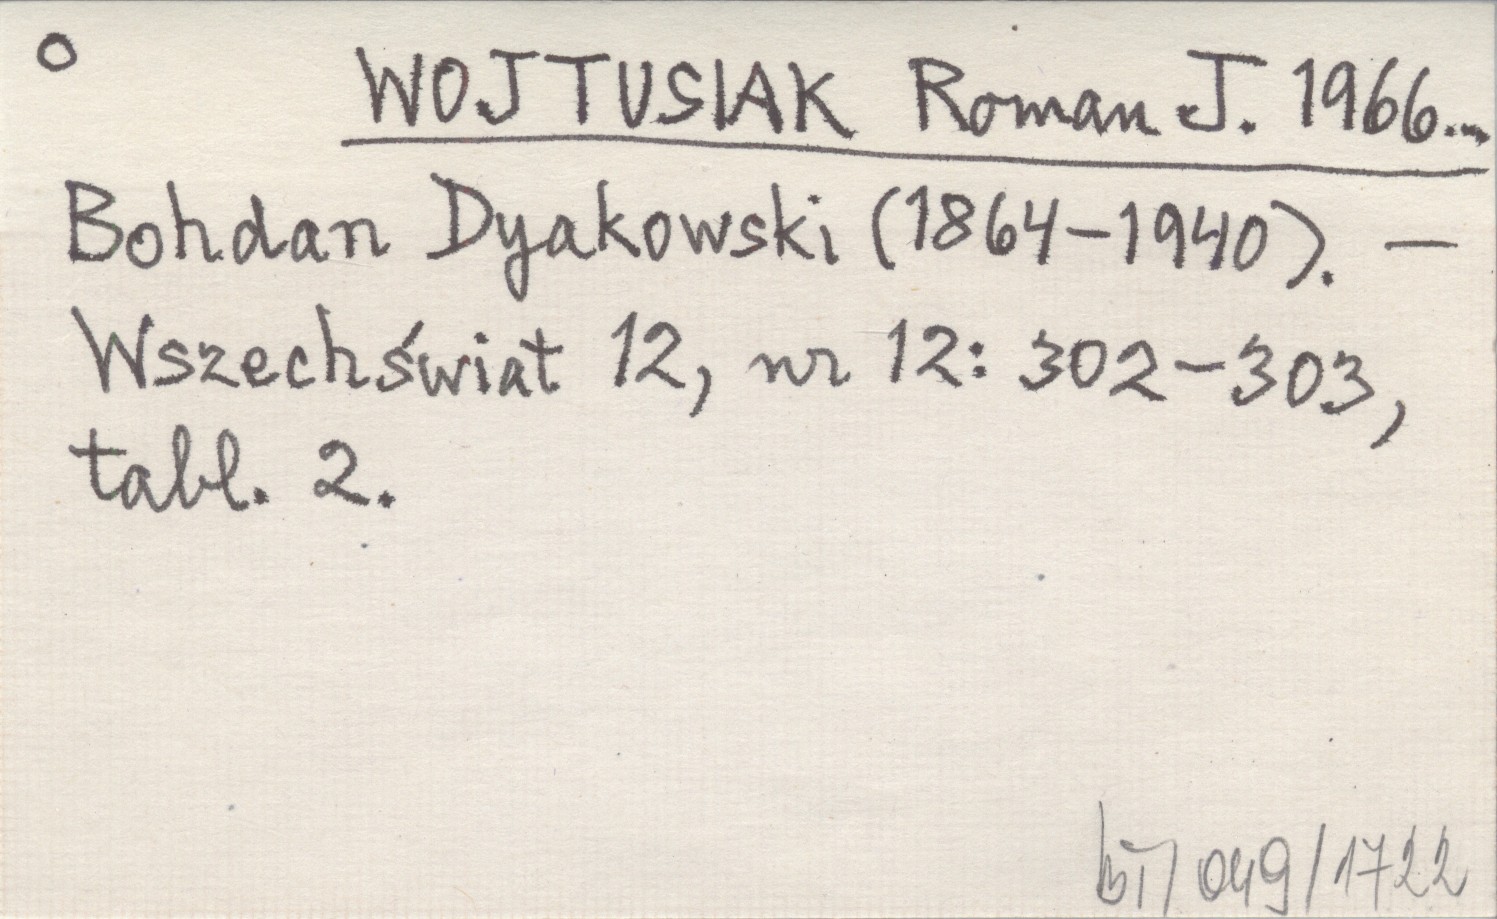 o WOJTUSIAK Roman J. 1966...
Bohdan Dyakowski (1864-1940). —
Wszechświat 12, nr 12: 302-303,
tabl. 2.
049/1722